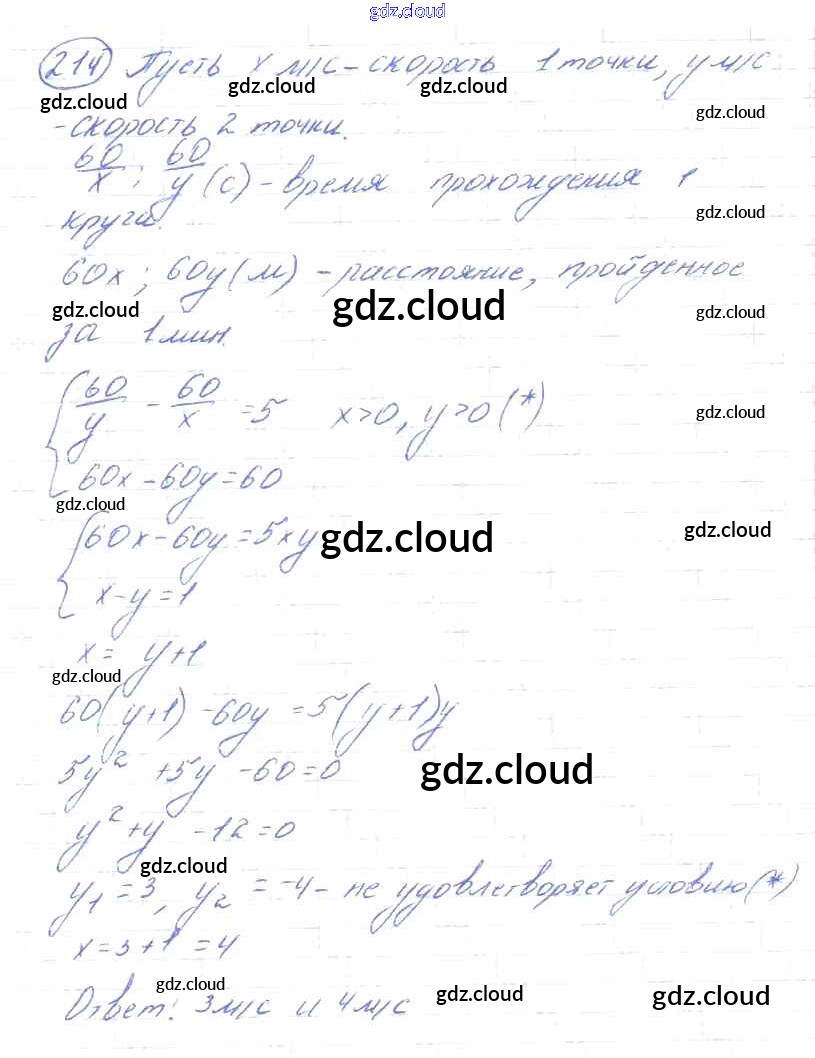 gdz.cloud
214 Пусть x м/с - скорость 1 точки, y м/с
gdz.cloud gdz.cloud gdz.cloud gdz.cloud
- скорость 2 точки.
60/x ; 60/y (с) - время прохождения 1
gdz.cloud
круга.
60x ; 60y (м) - расстояние, пройденное
gdz.cloud gdz.cloud gdz.cloud
за 1 мин.
{ 60/y - 60/x = 5 x>0, y>0 (*)
gdz.cloud
60x - 60y = 60
gdz.cloud
{ 60x - 60y = 5xy
gdz.cloud gdz.cloud
x - y = 1
x = y+1
gdz.cloud
60(y+1) - 60y = 5(y+1)y
5y² + 5y - 60 = 0
gdz.cloud
y² + y - 12 = 0
gdz.cloud
y₁ = 3, y₂ = -4 - не удовлетворяет условию (*)
x = 3+1 = 4
gdz.cloud gdz.cloud gdz.cloud
Ответ: 3 м/с и 4 м/с